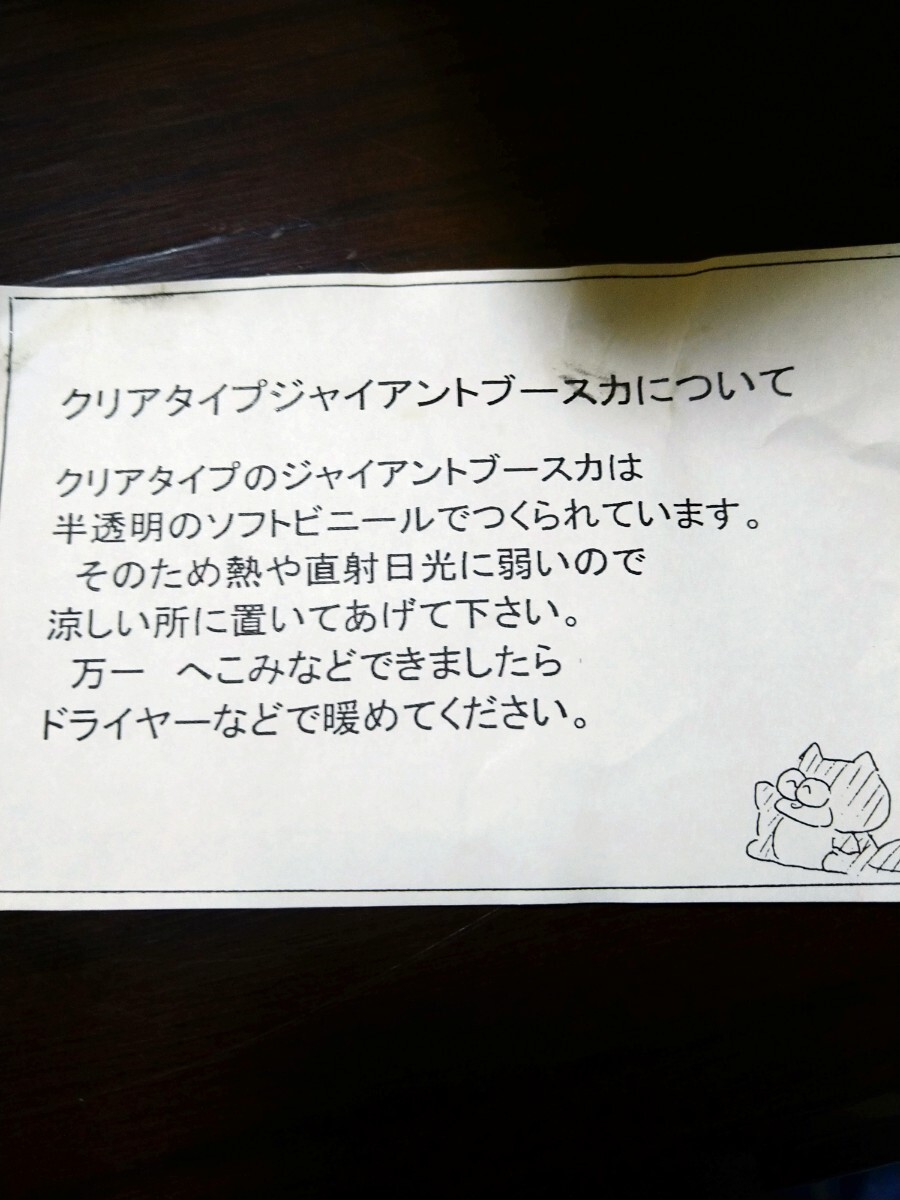 クリアタイプジャイアントブースカについて
クリアタイプのジャイアントブースカは
半透明のソフトビニールでつくられています。
そのため熱や直射日光に弱いので
涼しい所に置いてあげて下さい。
万一　へこみなどできましたら
ドライヤーなどで暖めてください。